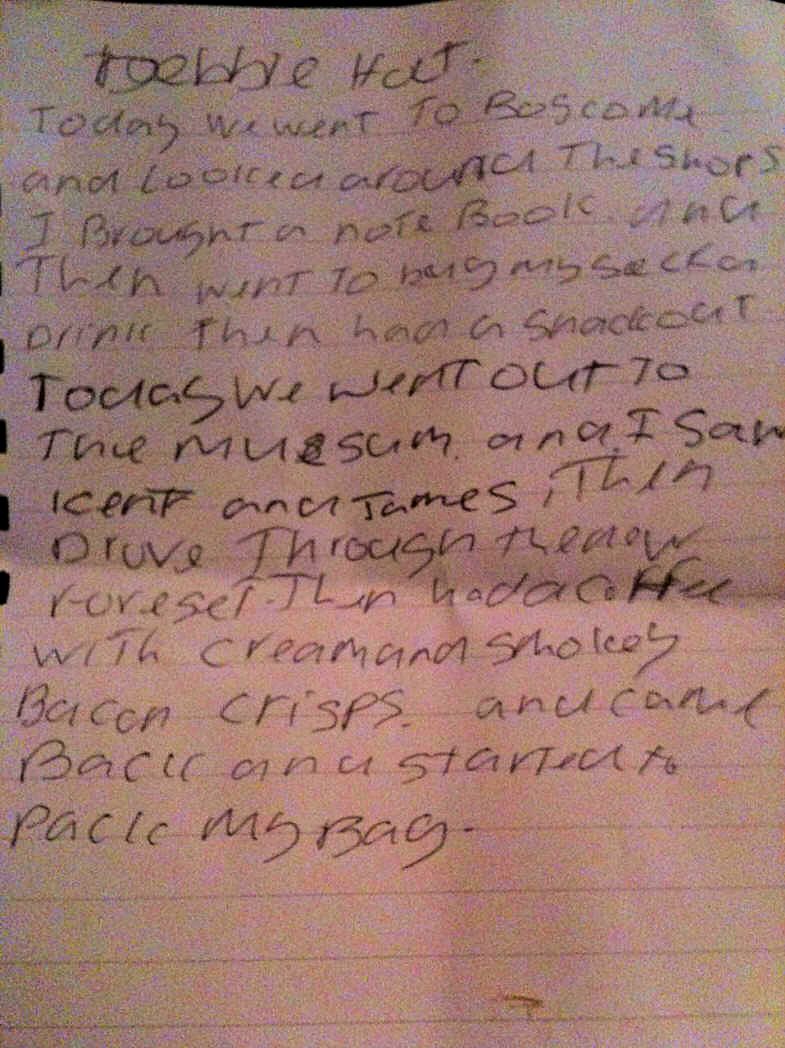 Debbie Hat.
Today we went To Boscome
and Looked around The shops
I Brought a note Book. and
Then went To buy my
Drink Then had a snack out
Today we went out To
The Muesum. and I Saw
kent and James, Then
Drove Through the new
foreset. Then had a Coffee
with cream and smokey
Bacon crisps. and came
Back and started to
Pack My Bag.